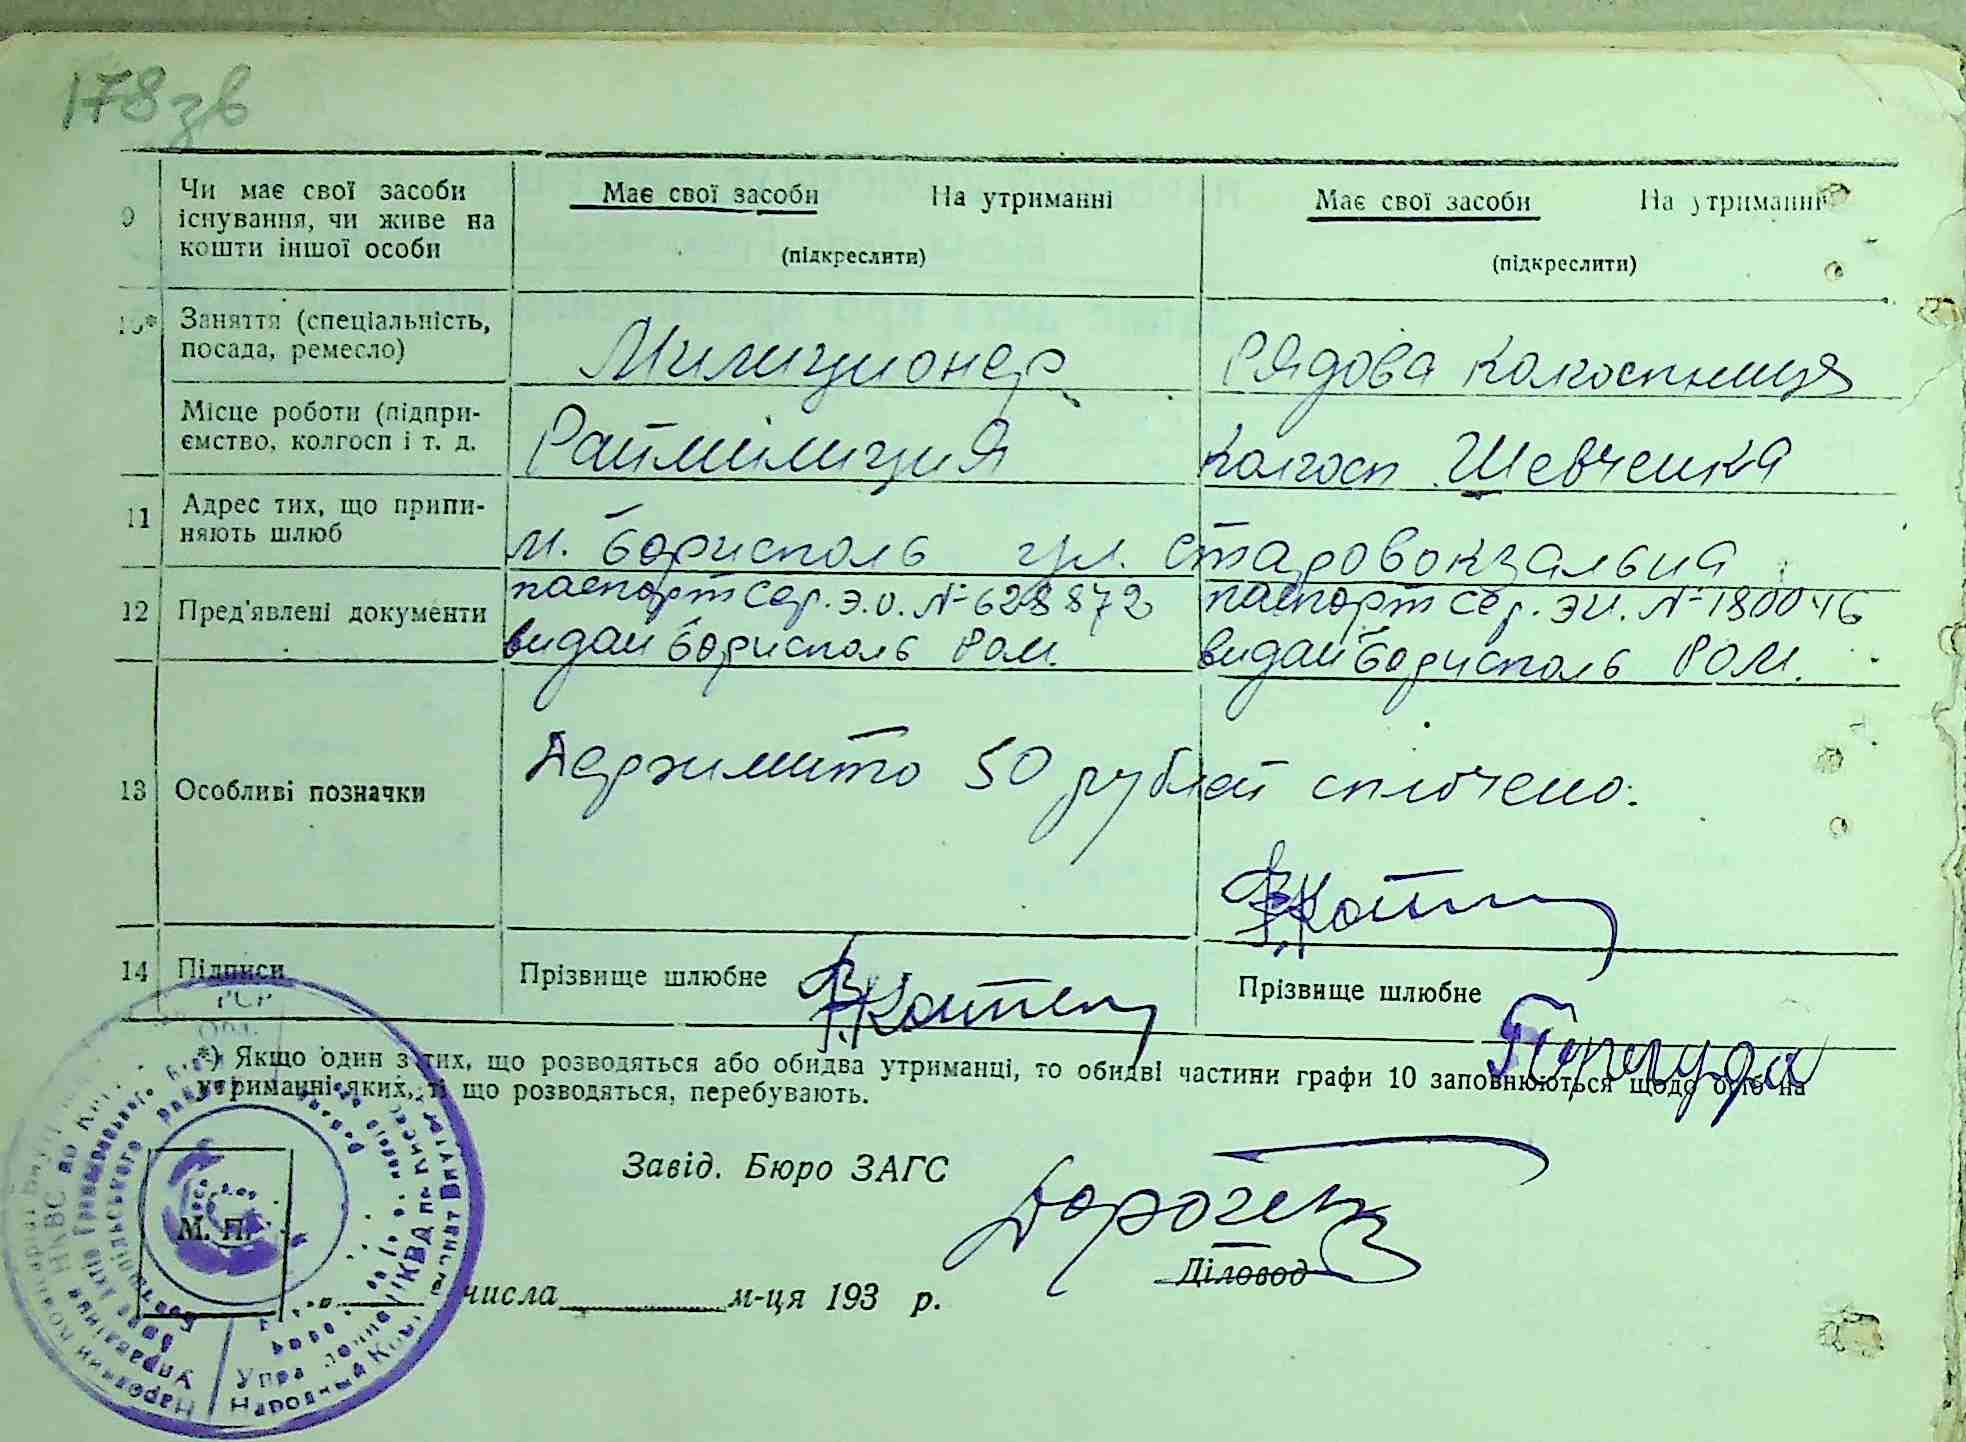 178 зв
9 Чи має свої засоби існування, чи живе на кошти іншої особи
Має свої засоби На утриманні
(підкреслити)
Має свої засоби На утриманні
(підкреслити)
10* Заняття (спеціальність, посада, ремесло)
Милиционер
Рядова колгоспниця
Місце роботи (підпри-
ємство, колгосп і т. д.
Раймилиция
колгосп Шевченка
11 Адрес тих, що припи-
няють шлюб
м. Бориспољ
вул. Старовокзальна
12 Пред'явлені документи
паспорт сер. Э.И. № 628872
видан Борисполь РОМ.
паспорт сер. ЭИ. № 180046
видан Борисполь РОМ.
13 Особливі позначки
Держмито 50 рублей сплочено.
14 Підписи
Прізвище шлюбне
Прізвище шлюбне
*) Якщо один з тих, що розводяться або обидва утриманці, то обидві частини графи 10 заповнюються щодо осіб на
утриманні яких, ті що розводяться, перебувають.
Завід. Бюро ЗАГС
Діловод
М. П.
числа м-ця 193 р.